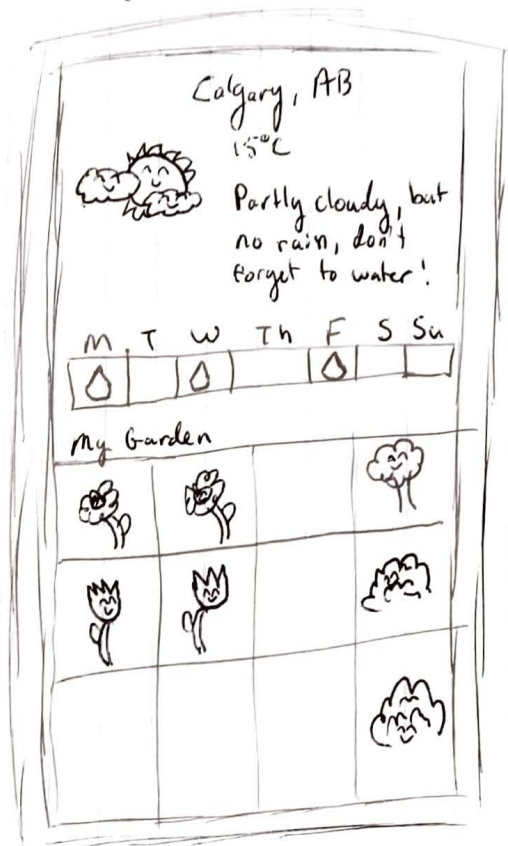 Calgary, AB
15°C
Partly cloudy, but
no rain, don't
forget to water!
M T W Th F S Su
My Garden